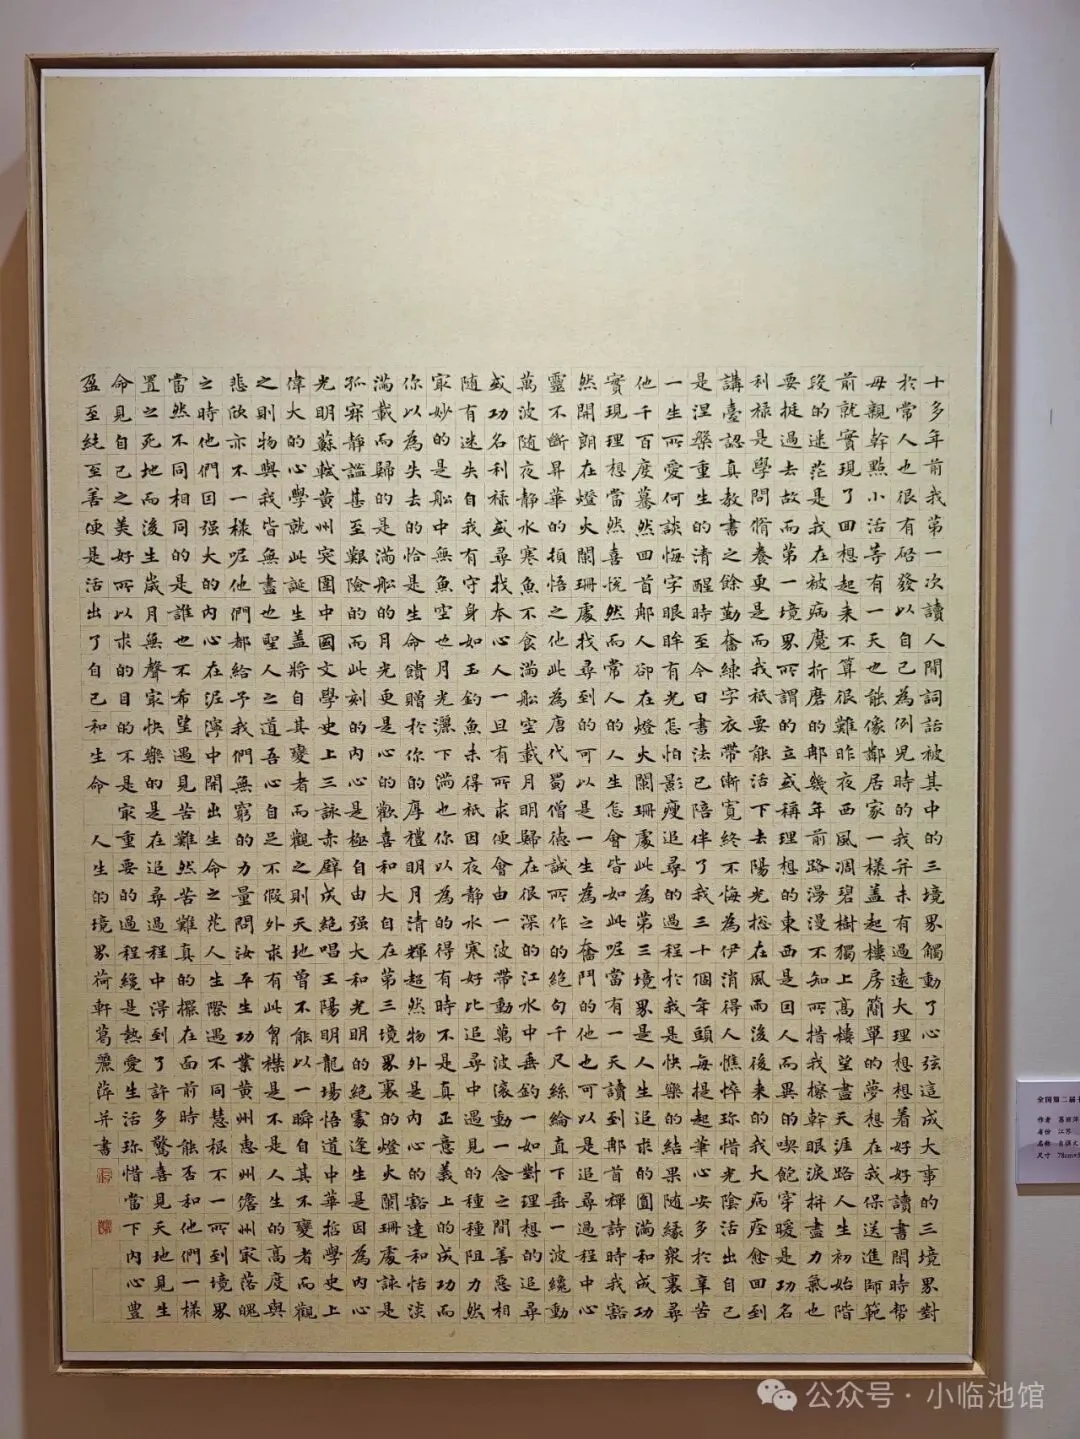 十多年前我第一次讀人間詞話被其中的三境界觸動了心弦這成大事的三境界對
於常人也很有啟發以自己為例兒時的我并未有過遠大理想想着好好讀書閒時幫
母親幹點小活等有一天也能像鄰居家一樣蓋起樓房簡單的夢想在我保送進師範
前就實現了回想起來不算很難昨夜西風凋碧樹獨上高樓望盡天涯路人生初始階
段的迷茫是我在被病魔折磨的那幾年前路漫漫不知所措我擦幹眼淚拼盡力氣也
要挺過去故而第一境界所謂的立或稱理想的東西是因人而異的喫飽穿暖是功名
利祿是學問脩養更是而我祇要能活下去陽光總在風雨後後來的我大病痊愈回到
講臺認真教書之餘勤奮練字衣帶漸寬終不悔為伊消得人憔悴珍惜光陰活出自己
是涅槃重生的清醒時至今日書法已陪伴了我三十個年頭每提起筆心安多於辛苦
一生所愛何談悔字眼眸有光怎怕影瘦追尋的過程於我是快樂的結果隨緣衆裏尋
他千百度驀然回首那人卻在燈火闌珊處此為第三境界是人生追求的圓滿和成功
實現理想當然喜悅然而常人的人生怎會皆如此呢當有一天讀到那首禪詩時我豁
然開朗在燈火闌珊處找尋到的可以是一生為之奮鬥的他也可以是尋過程中心
靈不斷昇華的頓悟之他此為唐代蜀僧德誠所作的絕句千尺絲綸直下垂一波纔動
萬波隨夜靜水寒魚不食滿船空載月明歸在很深的江水中垂釣一如對理想的追尋
或功名利祿或尋找本心人一旦有所求便會由一波帶動萬波滾動一念之間善惡相
隨有迷失自我有守身如玉釣魚未得祇因夜靜水寒好比追尋中遇見的種種阻力然
最妙的是船中無魚空也月光灑下滿也你以為的得有時不是真正意義上的成功而
你以為失去的恰是生命饋贈於你的厚禮明月清輝超然物外是內心的豁達和恬淡
滿載而歸的是滿船的月光更是心的歡喜和大自在第三境界裏的燈火闌珊處詠是
孤寂靜謐甚至艱險的而此刻的內心是極自由强大和光明的絕境逢生是因為內心
光明蘇軾黃州突圍中國文學史上三詠赤壁成絕唱王陽明龍場悟道中華哲學史上
偉大的心學就此誕生蓋將自其變者而觀之則天地曾不能以一瞬自其不變者而觀
之則物與我皆無盡也聖人之道吾心自足不假外求有此胷襟是人生的高度與
悲欣亦不一樣呢他們都給予我們無窮的力量問汝平生功業黃州惠州儋州最落魄
之時他們因强大的內心在泥濘中開出生命之花人生際遇不同慧根不一所到境界
當然不同相同的是誰也不希望遇見苦難然苦難真的擺在面前時能否和他們一樣
置之死地而後生歲月無聲最快樂的是在追尋過程中得到了許多驚喜見天地見生
命見自己之美好所以求的目的不是最重要的過程纔是熱愛生活珍惜當下內心豐
盈至純至善便是活出了自己和生命 人生的境界荷軒葛麗萍并書
全国第二届
作者 葛丽萍
省份 江苏
名称 自撰文
尺寸 78cm×
公众号·小临池馆